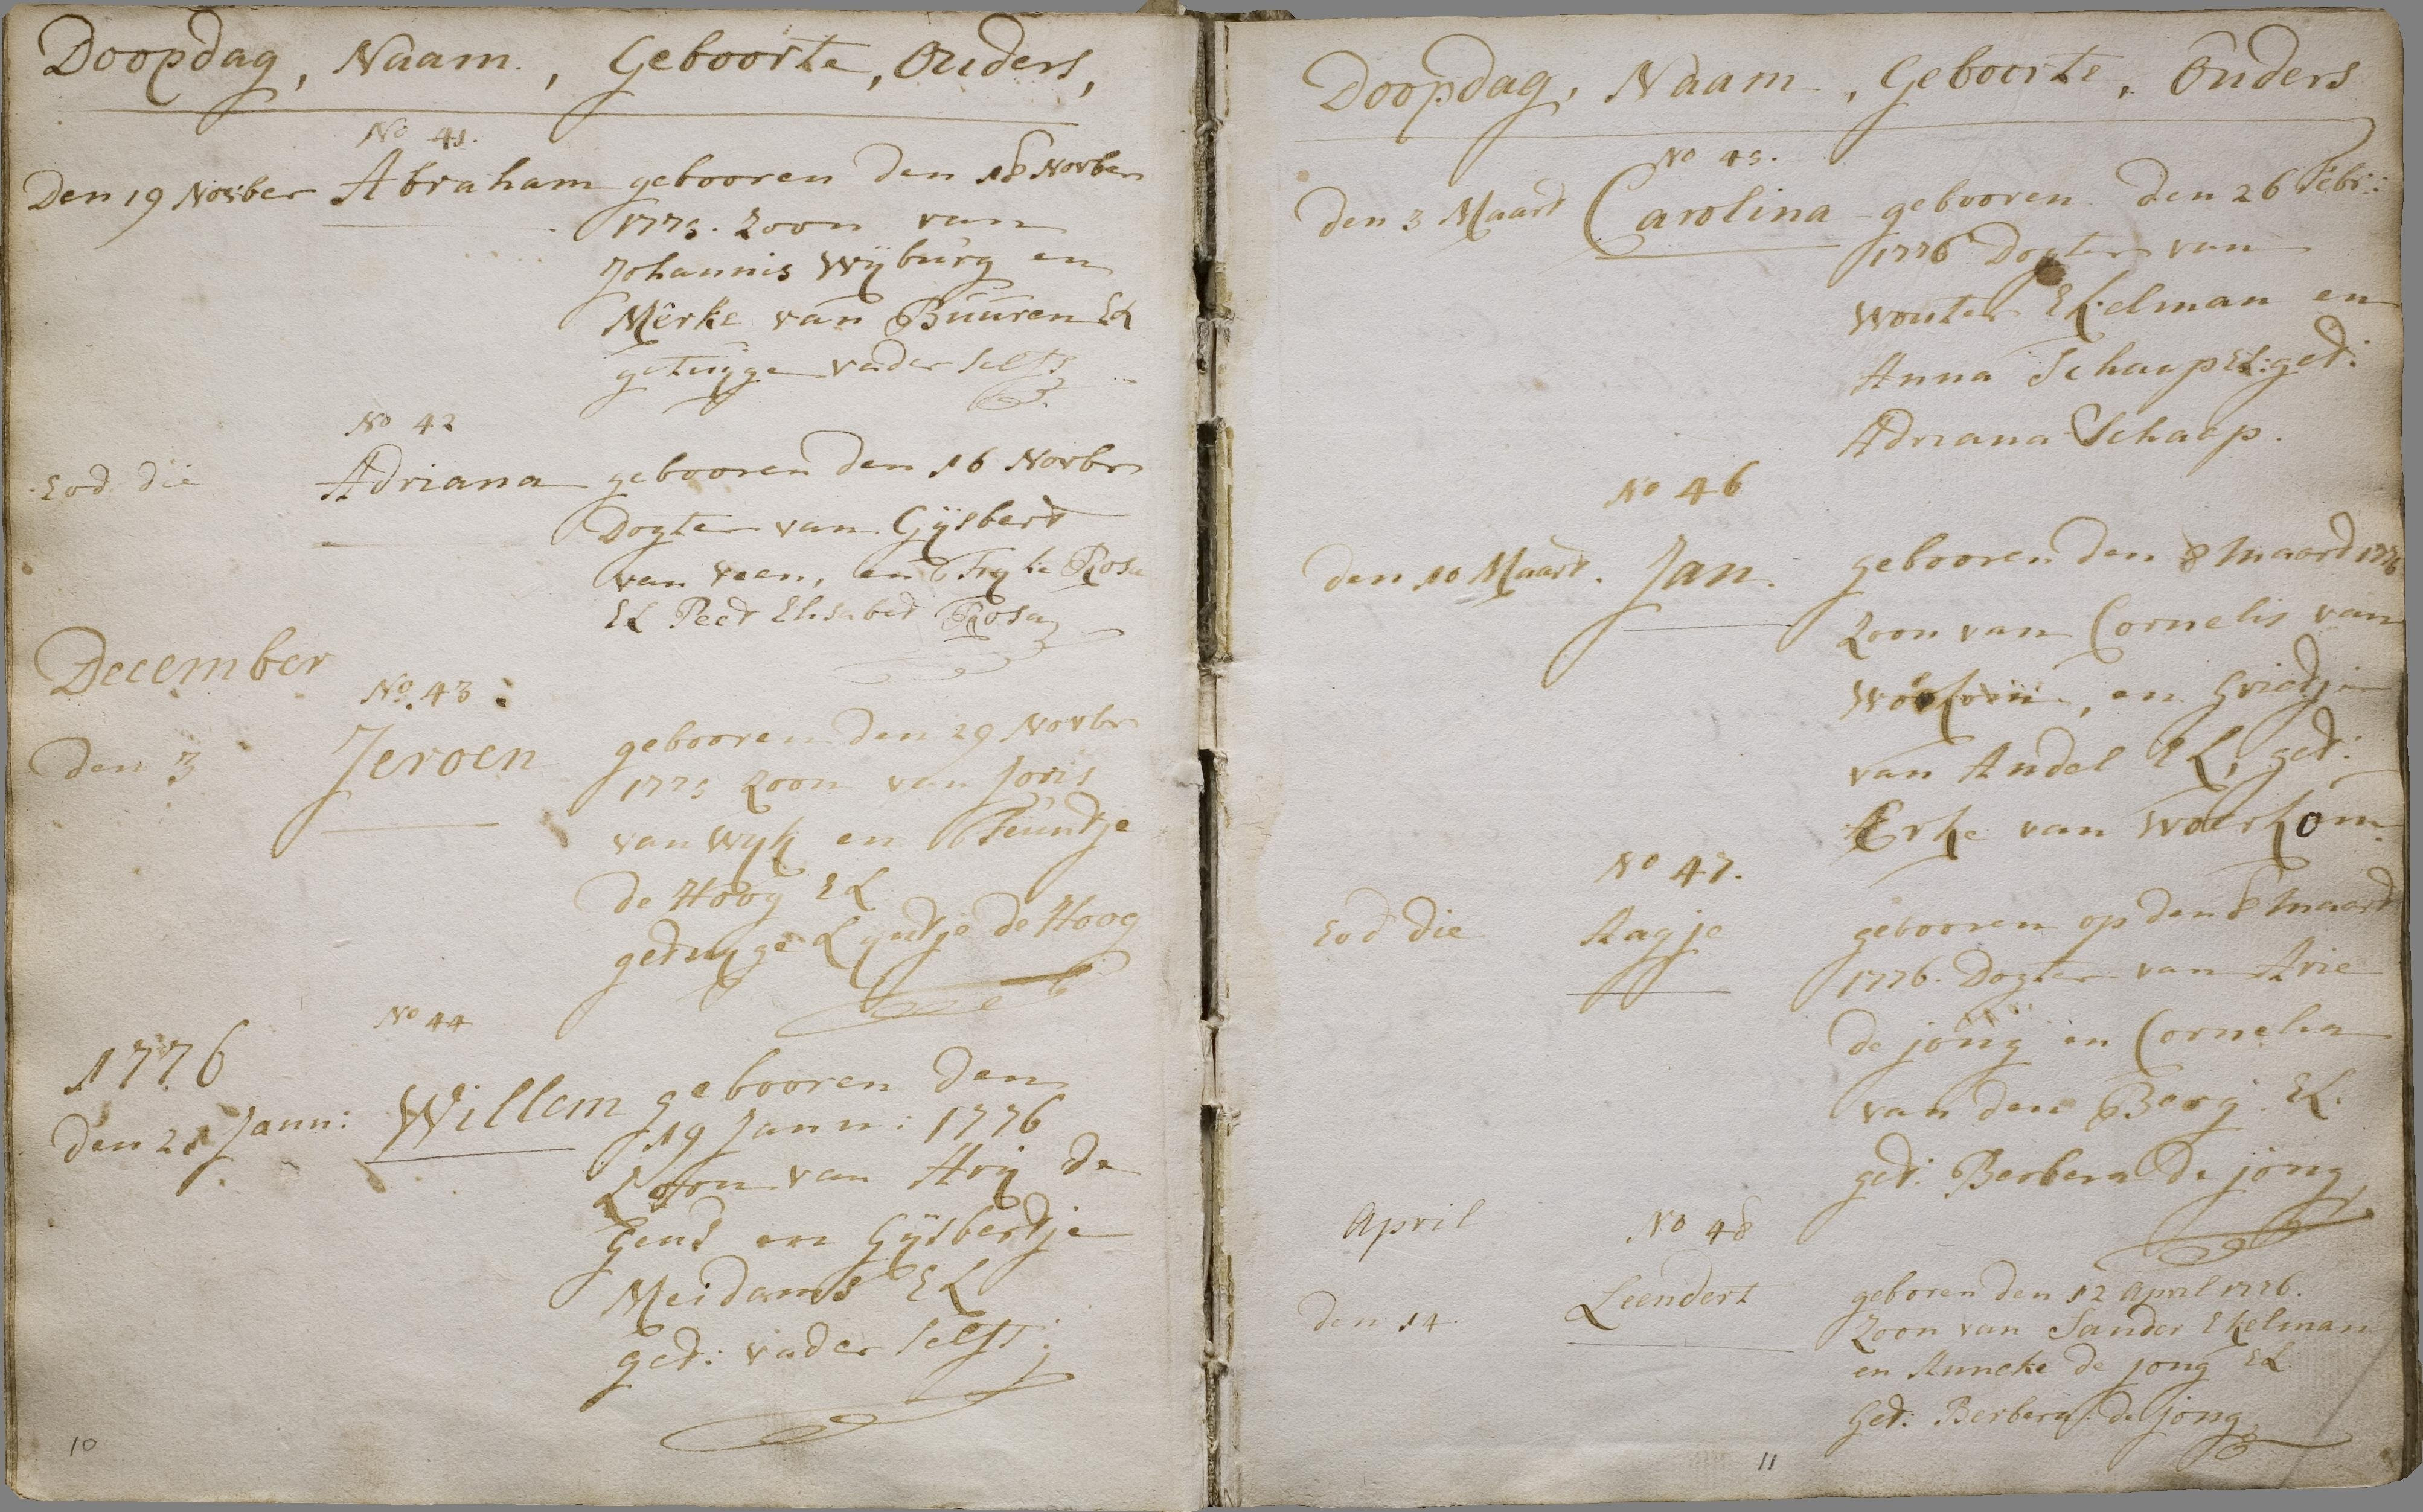 Doopdag, Naam., Geboorte, Ouders,
No 41.
Den 19 Novber Abraham gebooren den 18 Novber
1775. Zoon van
Johannis Wÿburg en
Merke van Buuren EL
getuÿge vader selfs
No 42
Eod die Adriana gebooren den 16 Novbr
Dogter van Gÿsbert
van veen, en Rosa
EL Peet Elisabet Rosa
December
No. 43
den 3 Jeroen gebooren den 29 Novbr
1775 Zoon van Joris
van Wÿk en Teuntje
de Hoog EL
getuÿge de Hoog
No 44
1776
den 21 Jann: Willem gebooren den
19 Jann: 1776
Zoon van Arÿ de
Geus en Gÿsbertje
Meidams EL
Get: vader selfs:
10
Doopdag, Naam, Geboorte, Ouders
No 45.
den 3 Maart Carolina gebooren den 26 Febr:
1776 Dogter van
Wouter Ekelman en
Anna Schaap EL: get:
Adriana Schaap.
No 46
den 10 Maart. Jan. gebooren den 8 Maart 1776
Zoon van Cornelis van
, en Grietje
van Andel EL, get:
van Woerkom.
No 47.
Eod die Aagje gebooren op den 8 Maart
1776. Dogter van Arie
de jong en Cornelia
van den Berg. EL.
get: Berbera de jong
April No 48
den 14. Leendert geboren den 12 April 1776.
Zoon van Sander Ekelman
en Anneke de jong EL
Get: Berbera de jong
11